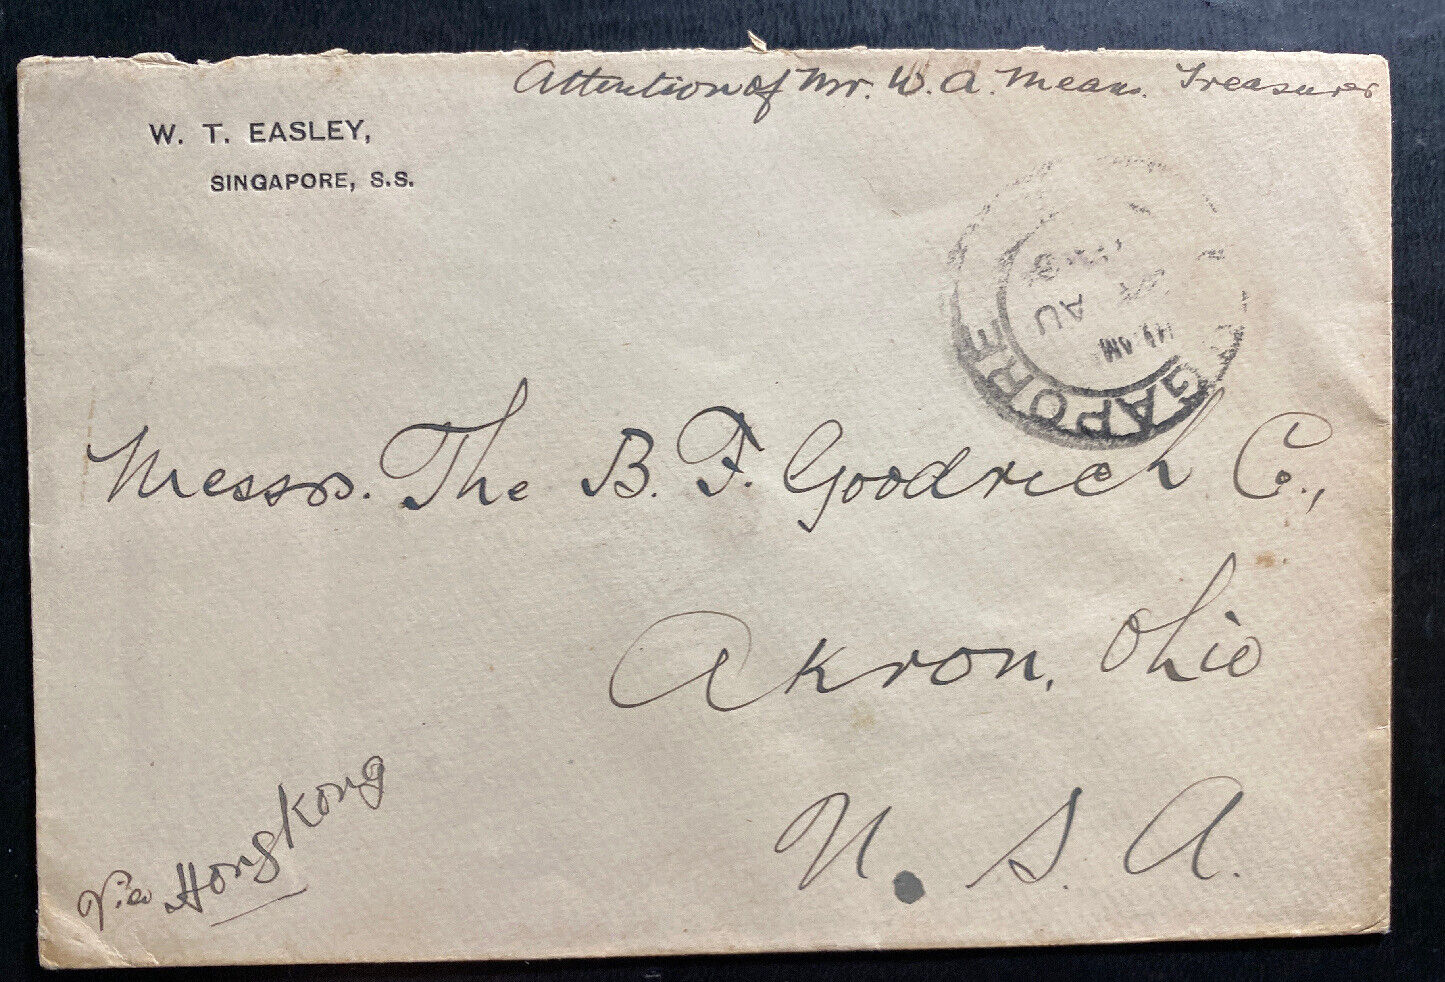 Attention of Mr. W. A. Means. Treasurer
W. T. EASLEY,
SINGAPORE, S.S.
GAPORE
AM
JA
Messrs. The B. F. Goodrich Co.,
Akron, Ohio
U. S. A.
Via HongKong